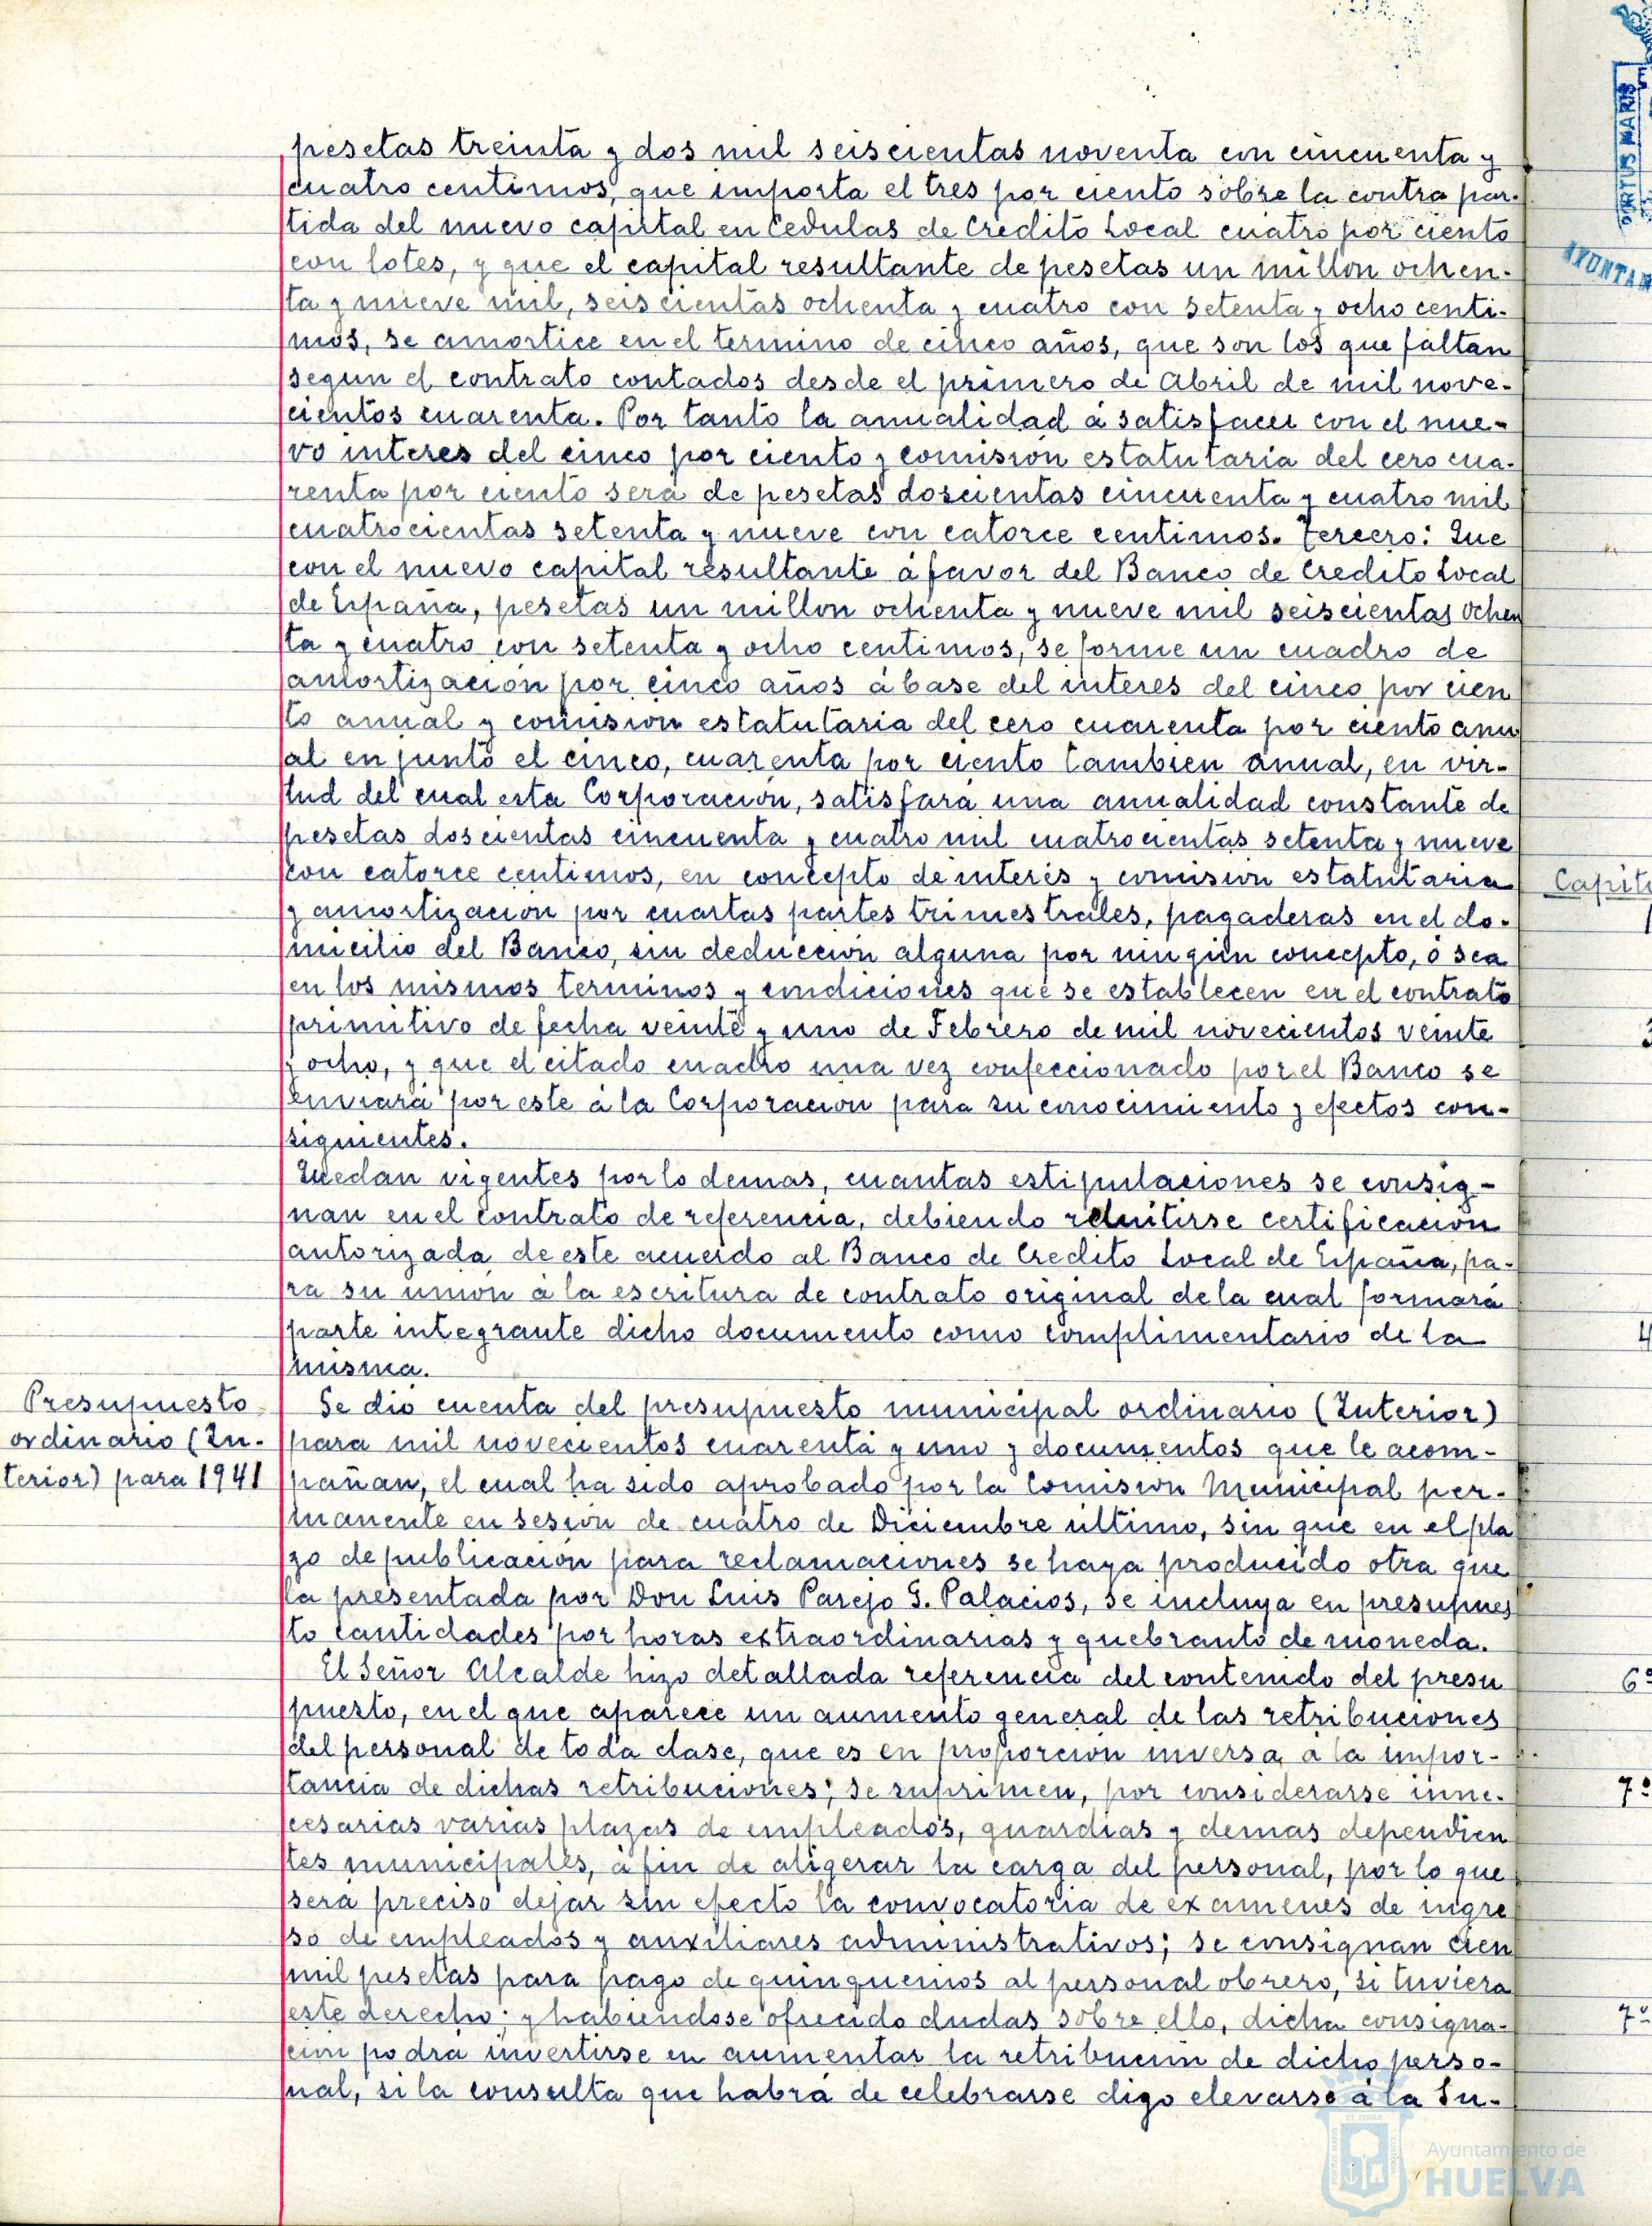 pesetas treinta y dos mil seiscientas noventa con cincuenta y
cuatro centimos, que importa el tres por ciento sobre la contra par-
tida del nuevo capital en Cedulas de Credito Local cuatro por ciento
con lotes, y que el capital resultante de pesetas un millon ochen-
ta y nueve mil, seiscientas ochenta y cuatro con setenta y ocho centi-
mos, se amortice en el termino de cinco años, que son los que faltan
segun el contrato contados desde el primero de Abril de mil nove-
cientos cuarenta. Por tanto la anualidad á satisfacer con el nue-
vo interes del cinco por ciento y comision estatutaria del cero cua-
renta por ciento será de pesetas doscientas cincuenta y cuatro mil
cuatrocientas setenta y nueve con catorce centimos. Tercero: Que
con el nuevo capital resultante á favor del Banco de Credito Local
de España, pesetas un millon ochenta y nueve mil seiscientas ochen
ta y cuatro con setenta y ocho centimos, se forme un cuadro de
amortizacion por cinco años á base del interes del cinco por cien
to anual y comision estatutaria del cero cuarenta por ciento anu
al en junto el cinco, cuarenta por ciento tambien anual, en vir-
tud del cual esta Corporacion, satisfará una anualidad constante de
pesetas doscientas cincuenta y cuatro mil cuatrocientas setenta y nueve
con catorce centimos, en concepto de interés y comision estatutaria
y amortizacion por cuartas partes trimestrales, pagaderas en el do-
micilio del Banco, sin deduccion alguna por ningún concepto, ó sea
en los mismos terminos y condiciones que se establecen en el contrato
primitivo de fecha veinte y uno de Febrero de mil novecientos veinte
y ocho, y que el citado cuadro una vez confeccionado por el Banco se
enviará por este á la Corporacion para su conocimiento y efectos con-
siguientes.
Quedan vigentes por lo demas, cuantas estipulaciones se consig-
nan en el contrato de referencia, debiendo remitirse certificacion
autorizada de este acuerdo al Banco de Credito Local de España, pa-
ra su unión á la escritura de contrato original de la cual formará
parte integrante dicho documento como complimentario de la
misma.
Presupuesto
ordinario (In-
terior) para 1941
Se dió cuenta del presupuesto municipal ordinario (Interior)
para mil novecientos cuarenta y uno y documentos que le acom-
pañan, el cual ha sido aprobado por la Comision Municipal per-
manente en sesión de cuatro de Diciembre último, sin que en el pla
zo de publicación para reclamaciones se haya producido otra que
la presentada por Don Luis Parejo G. Palacios, se incluya en presupues
to cantidades por horas extraordinarias y quebranto de moneda.
El Señor Alcalde hizo detallada referencia del contenido del presu
puesto, en el que aparece un aumento general de las retribuciones
del personal de toda clase, que es en proporcion inversa a la impor-
tancia de dichas retribuciones; se suprimen, por considerarse inne-
cesarias varias plazas de empleados, guardias y demas dependien
tes municipales, á fin de aligerar la carga del personal, por lo que
será preciso dejar sin efecto la convocatoria de examenes de ingre
so de empleados y auxiliares administrativos; se consignan cien
mil pesetas para pago de quinquenios al personal obrero, si tuviera
este derecho; y habiendose ofrecido dudas sobre ello, dicha consigna-
cion podrá invertirse en aumentar la retribucion de dicho perso-
nal, si la consulta que habrá de celebrarse digo elevarse á la Su-
Capit
3
4
6º
7º
7º
Ayuntamiento de
HUELVA